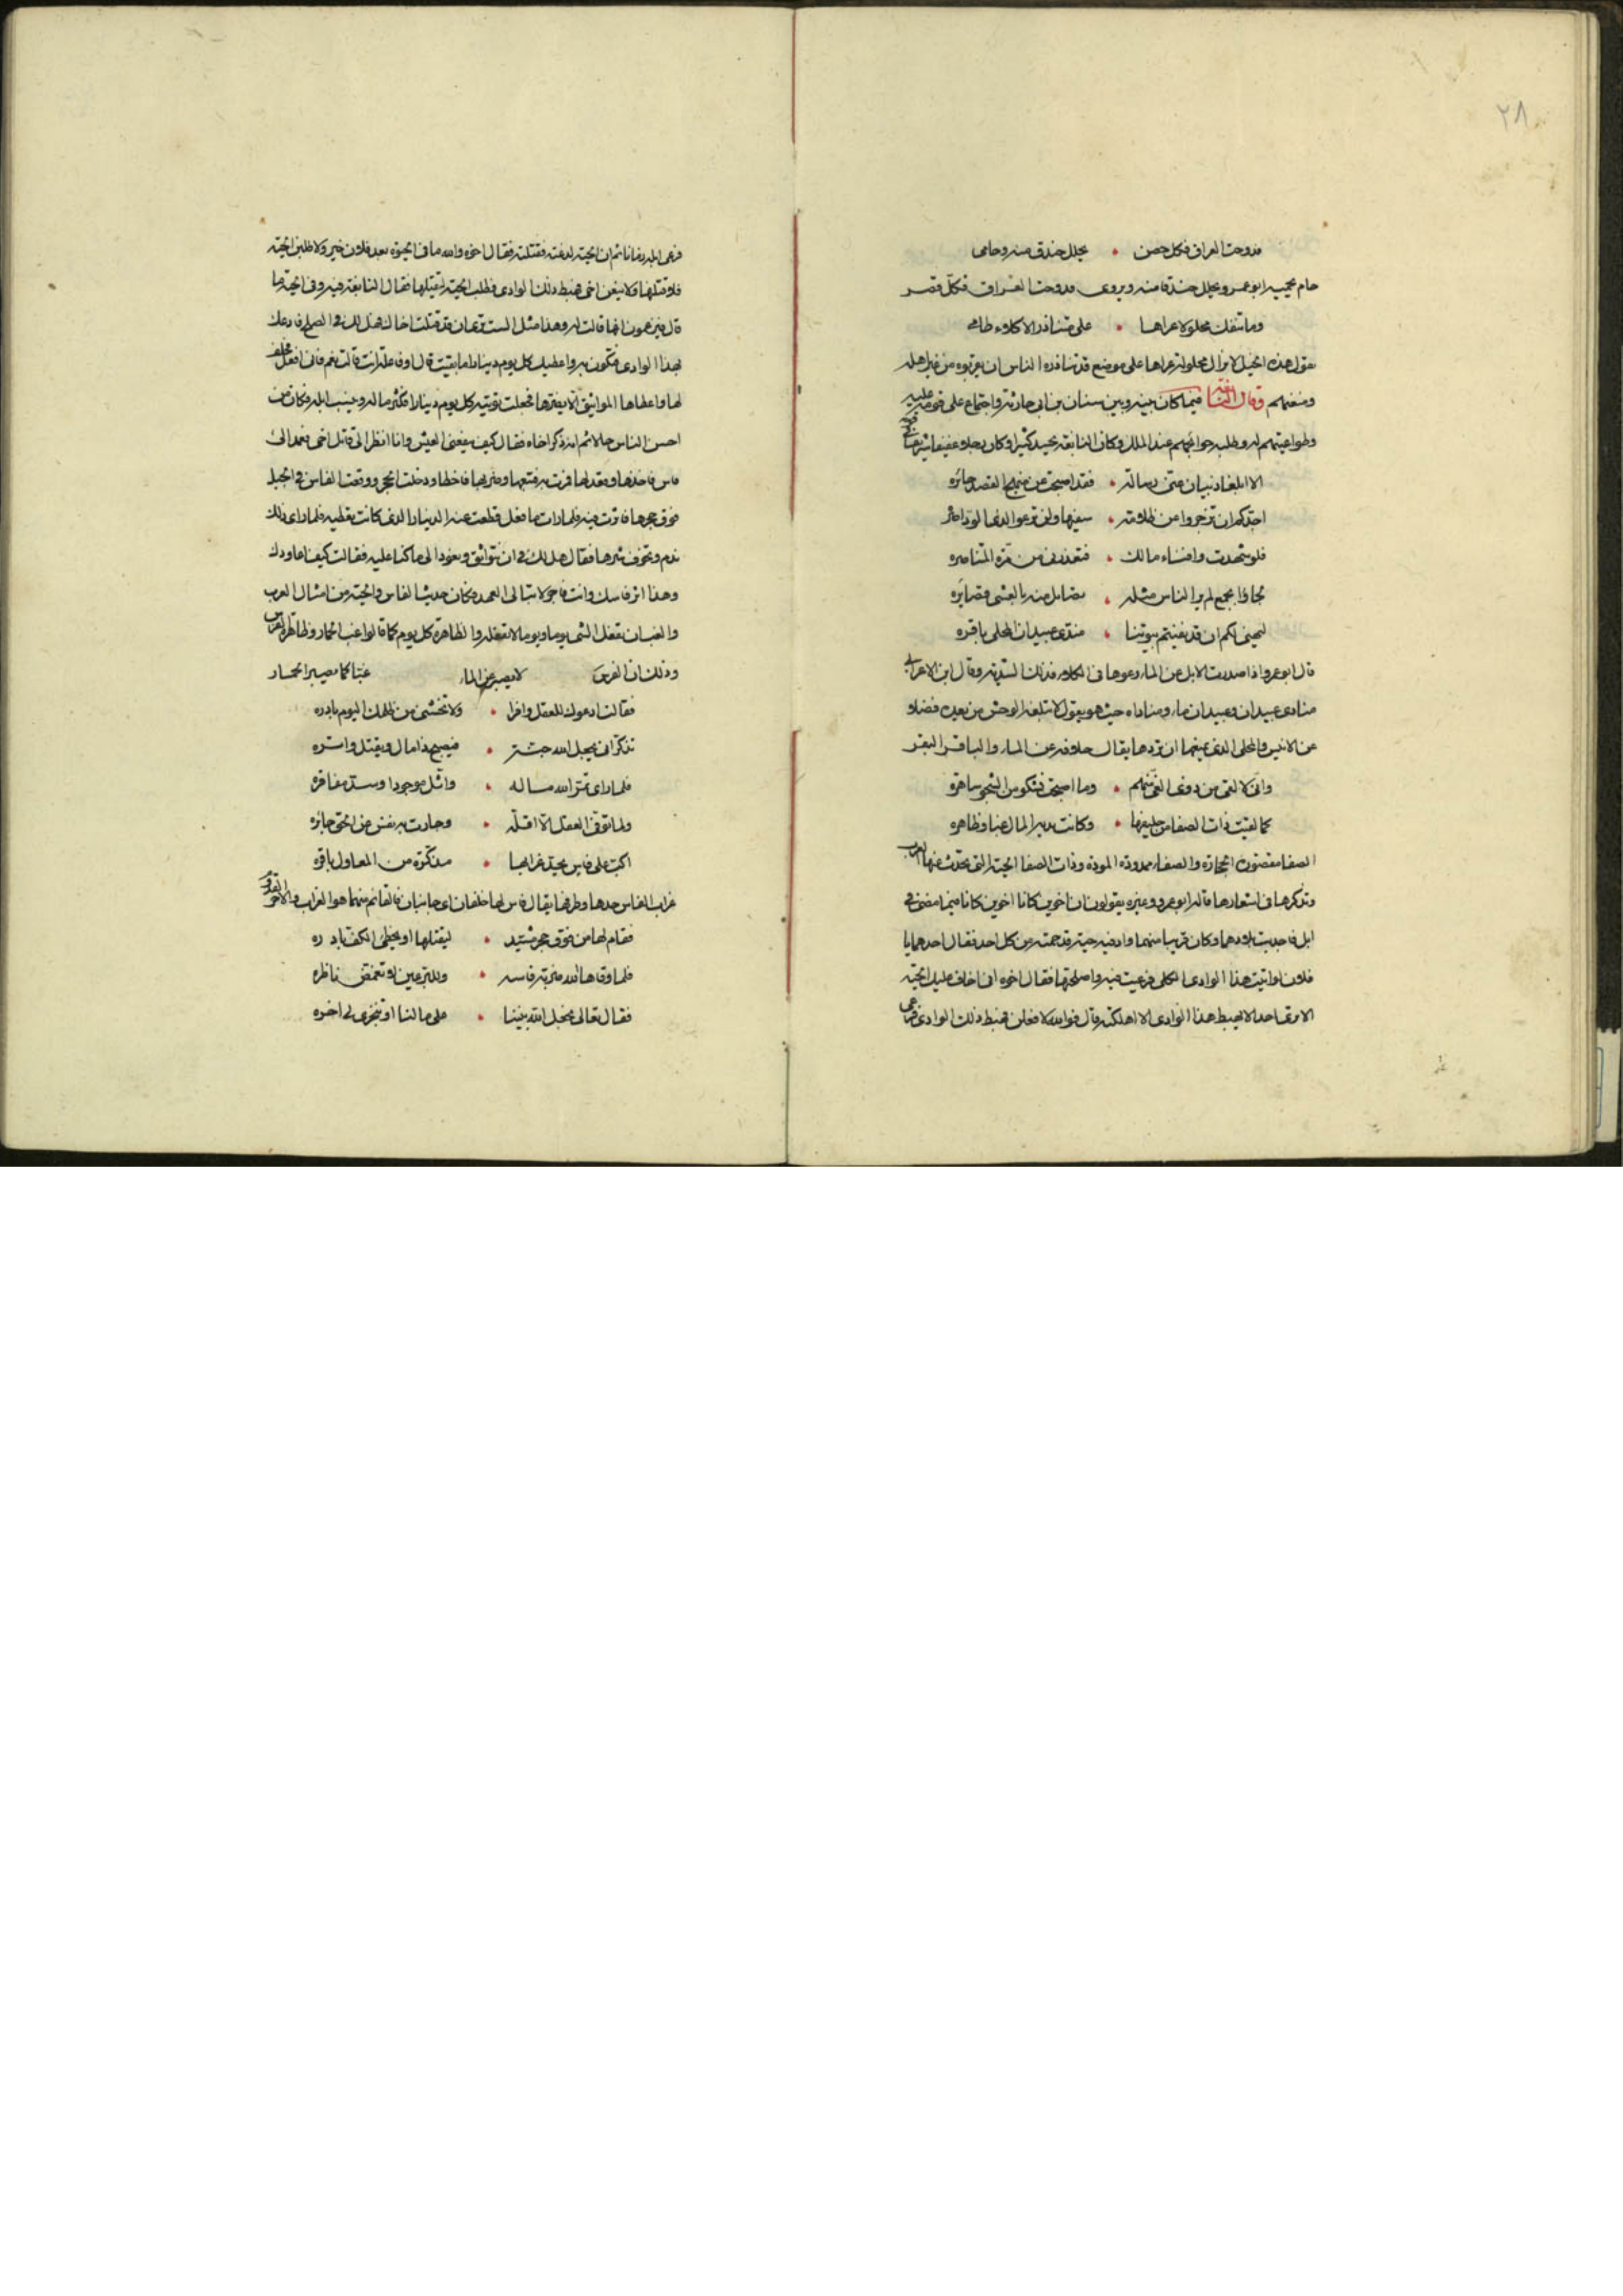 ٢٨
فدوخت العراق فكل حصن • يجلل خندق منه وحامى
حام يحميه ابو عمرو يجلل خندقا منه ويروى فدوخت العراق فكل قصر
وما تنفك محلولا عراها • على متناذر الاكلاء طامى
يقول هذه الخيل لا يزال محلولة عراها على موضع قد تناذره الناس ان يقربوه من اهله
ومنعتهم وقال النابغة فيما كان بينه وبين سنان بن ابى حارثة واجتماع على
وطواعيتهم له وطلبه حوائجهم عند الملك وكان النابغة يحسد كثيرا وكان رجلا عفيفا
الا ابلغا ذبيان عنى رسالة • فقد اصبحت عن منهج القصد جائره
اجدكم ان تزجروا عن ظلامة • سفيها ولن ترعوا لذى الود اصره
فلو شهدت وافناء مالك • فتعذرنى من مرة المتناصره
لجاؤا بجمع لم ير الناس مثله • تضاءل منه بالعشى قصائره
ليهنى لكم ان قد نفيتم بيوتنا • مندى عبيدان المحلى باقره
قال ابو عمرو اذا صدرت الابل عن الماء رعوها فى الكلاء فذلك التندية وقال ابن الاعرابى
منادى عبيدان وعبيدان ماء ومناداه حيث هو يقول لا تبلغه الوحش من بعده فضلا
عن الانيس والمحلى الذى يمنعها ان تردها يقال حلاته عن الماء والباقر البقر
وانى لالقى من ذوى الغى منهم • وما اصبحت تشكو من الشجو ساهره
كما لقيت ذات الصفا من حليفها • وكانت تديه المال غبا وظاهره
الصفا مقصور الحجارة والصفاء ممدودة المودة وذات الصفا الحية التى تحدث عنها العرب
وتذكرها فى اشعارها قال ابو عمرو وغيره يقولون ان اخوين كانا فيما مضى فى
ابل فاجدبت بلادهما وكان قريبا منهما واد فيه حية قد حمته من كل احد فقال احدهما يا
فلان لو اتيت هذا الوادى المكلئ فرعيت فيه واصلحتها فقال اخوه انى اخاف عليك الحية
الا ترى احدا لا يهبط هذا الوادى الا اهلكته قال فوالله لافعلن فهبط ذلك الوادى فرعى
فرعى ابله زمانا ثم ان الحية لدغته فقتلته فقال اخوه والله ما فى الحيوة بعد فلان خير ولاطلبن الحية
فلاقتلها او لاتبعن اخى فهبط ذلك الوادى فطلب الحية ليقتلها فقال النابغة فيه وفى الحية ما
قال فيزعمون انها قالت له وهذا مثل الست ترى ان قد قتلت اخاك فهل لك فى الصلح فادعك
بهذا الوادى فتكون به واعطيك كل يوم دينارا ما بقيت قال او فاعلة انت قالت نعم قال فانى افعل فحلف
لها واعطاها المواثيق الا يضرها فجعلت تؤتيه كل يوم دينارا فكثر ماله ونمت ابله فكان من
احسن الناس حالا ثم انه ذكر اخاه فقال كيف ينفعنى العيش وانا انظر الى قاتل اخى فعمد الى
فاس فاخذها وقعد لها فمرت به فتبعها وضربها فاخطا ودخلت الحجر ووقعت الفاس فى الجبل
فوق جحرها فاثرت فيه فلما رات ما فعل قطعت عنه الدينار الذى كانت تعطيه فلما راى ذلك
ندم وتخوف شرها فقال هل لك فى ان نتواثق ونعود الى ما كنا عليه فقالت كيف اعاودك
وهذا اثر فاسك وانت فاجر لا تبالى العهد فكان حديث الفاس والحية من امثال العرب
والغب ان تفعل الشى يوما ويوما لا تفعله والظاهرة كل يوم كما قالوا غب الحمار وظاهرة الفرس
وذلك ان الفرس لا يصبر عن الماء غبا كما يصبر الحمار
فقالت ادعوك للعقل وافرا • ولا تخشى من ظلمك اليوم بادره
تذكر انى يجعل الله جنة • فيصبح ذا مال ويقتل واتره
فلما راى ثمر الله ماله • واثل موجودا وسد مفاقره
ولما توقى العقل الا اقله • وجارت به نفس عن الحق جائره
اكب على فاس يحد غرابها • مذكرة من المعاول باقره
غراب الفاس حدها وطرفها يقال فاس لها خلفان اى جانبان فالقائم منهما هو الغراب والاخر القدوم
فقام لها من فوق جحر مشيد • ليقتلها او يخطى الكف بادره
فلما وقاها الله ضربة فاسه • وللبر عين لا تغمض ناظره
فقال تعالى نجعل الله بيننا • على مالنا او تنجزى لى اخره